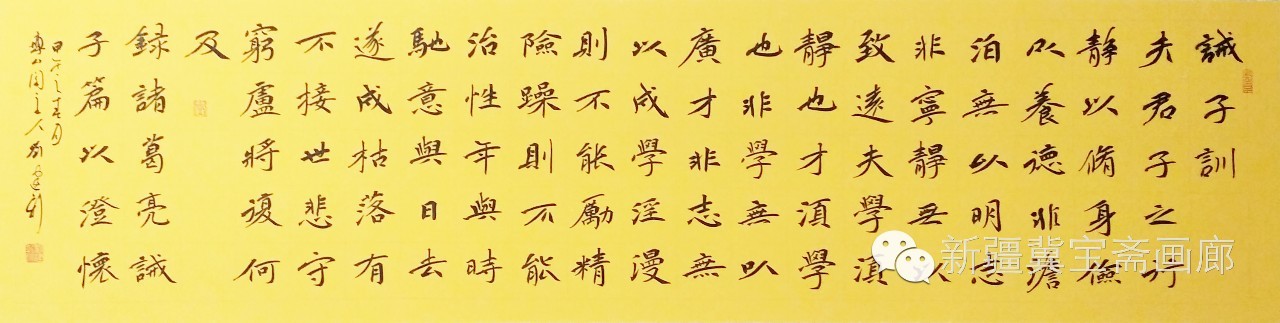 誡子訓
夫君子之行
靜以脩身儉
以養德非澹
泊無以明志
非寧靜无以
致遠夫學湏
靜也才湏學
也非學無以
廣才非志無
以成學淫漫
則不能勵精
險躁則不能
治性年與時
馳意與日去
遂成枯落有
不接世悲守
窮廬將復何
及
録諸葛亮誡
子篇以澄懷
甲午之春月
主人
新疆冀宝斋画廊